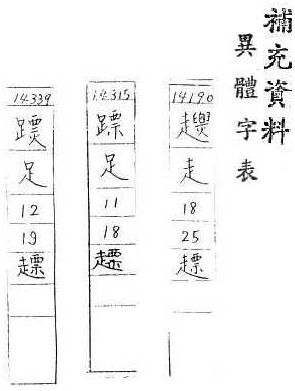 補充資料
異體字表
14190
走
18
25
14315
足
11
18
14339
足
12
19